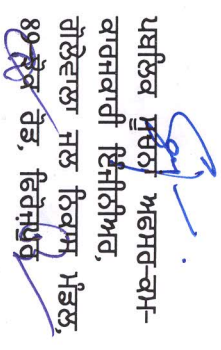 ਪਬਲਿਕ ਸੂਚਨਾ ਅਫਸਰ-ਕਮ-
ਕਾਰਜਕਾਰੀ ਇੰਜੀਨੀਅਰ,
ਗੋਲੇਵਾਲਾ ਜਲ ਨਿਕਾਸ ਮੰਡਲ,
89-ਕੈਂਪ ਰੋਡ, ਫਿਰੋਜ਼ਪੁਰ